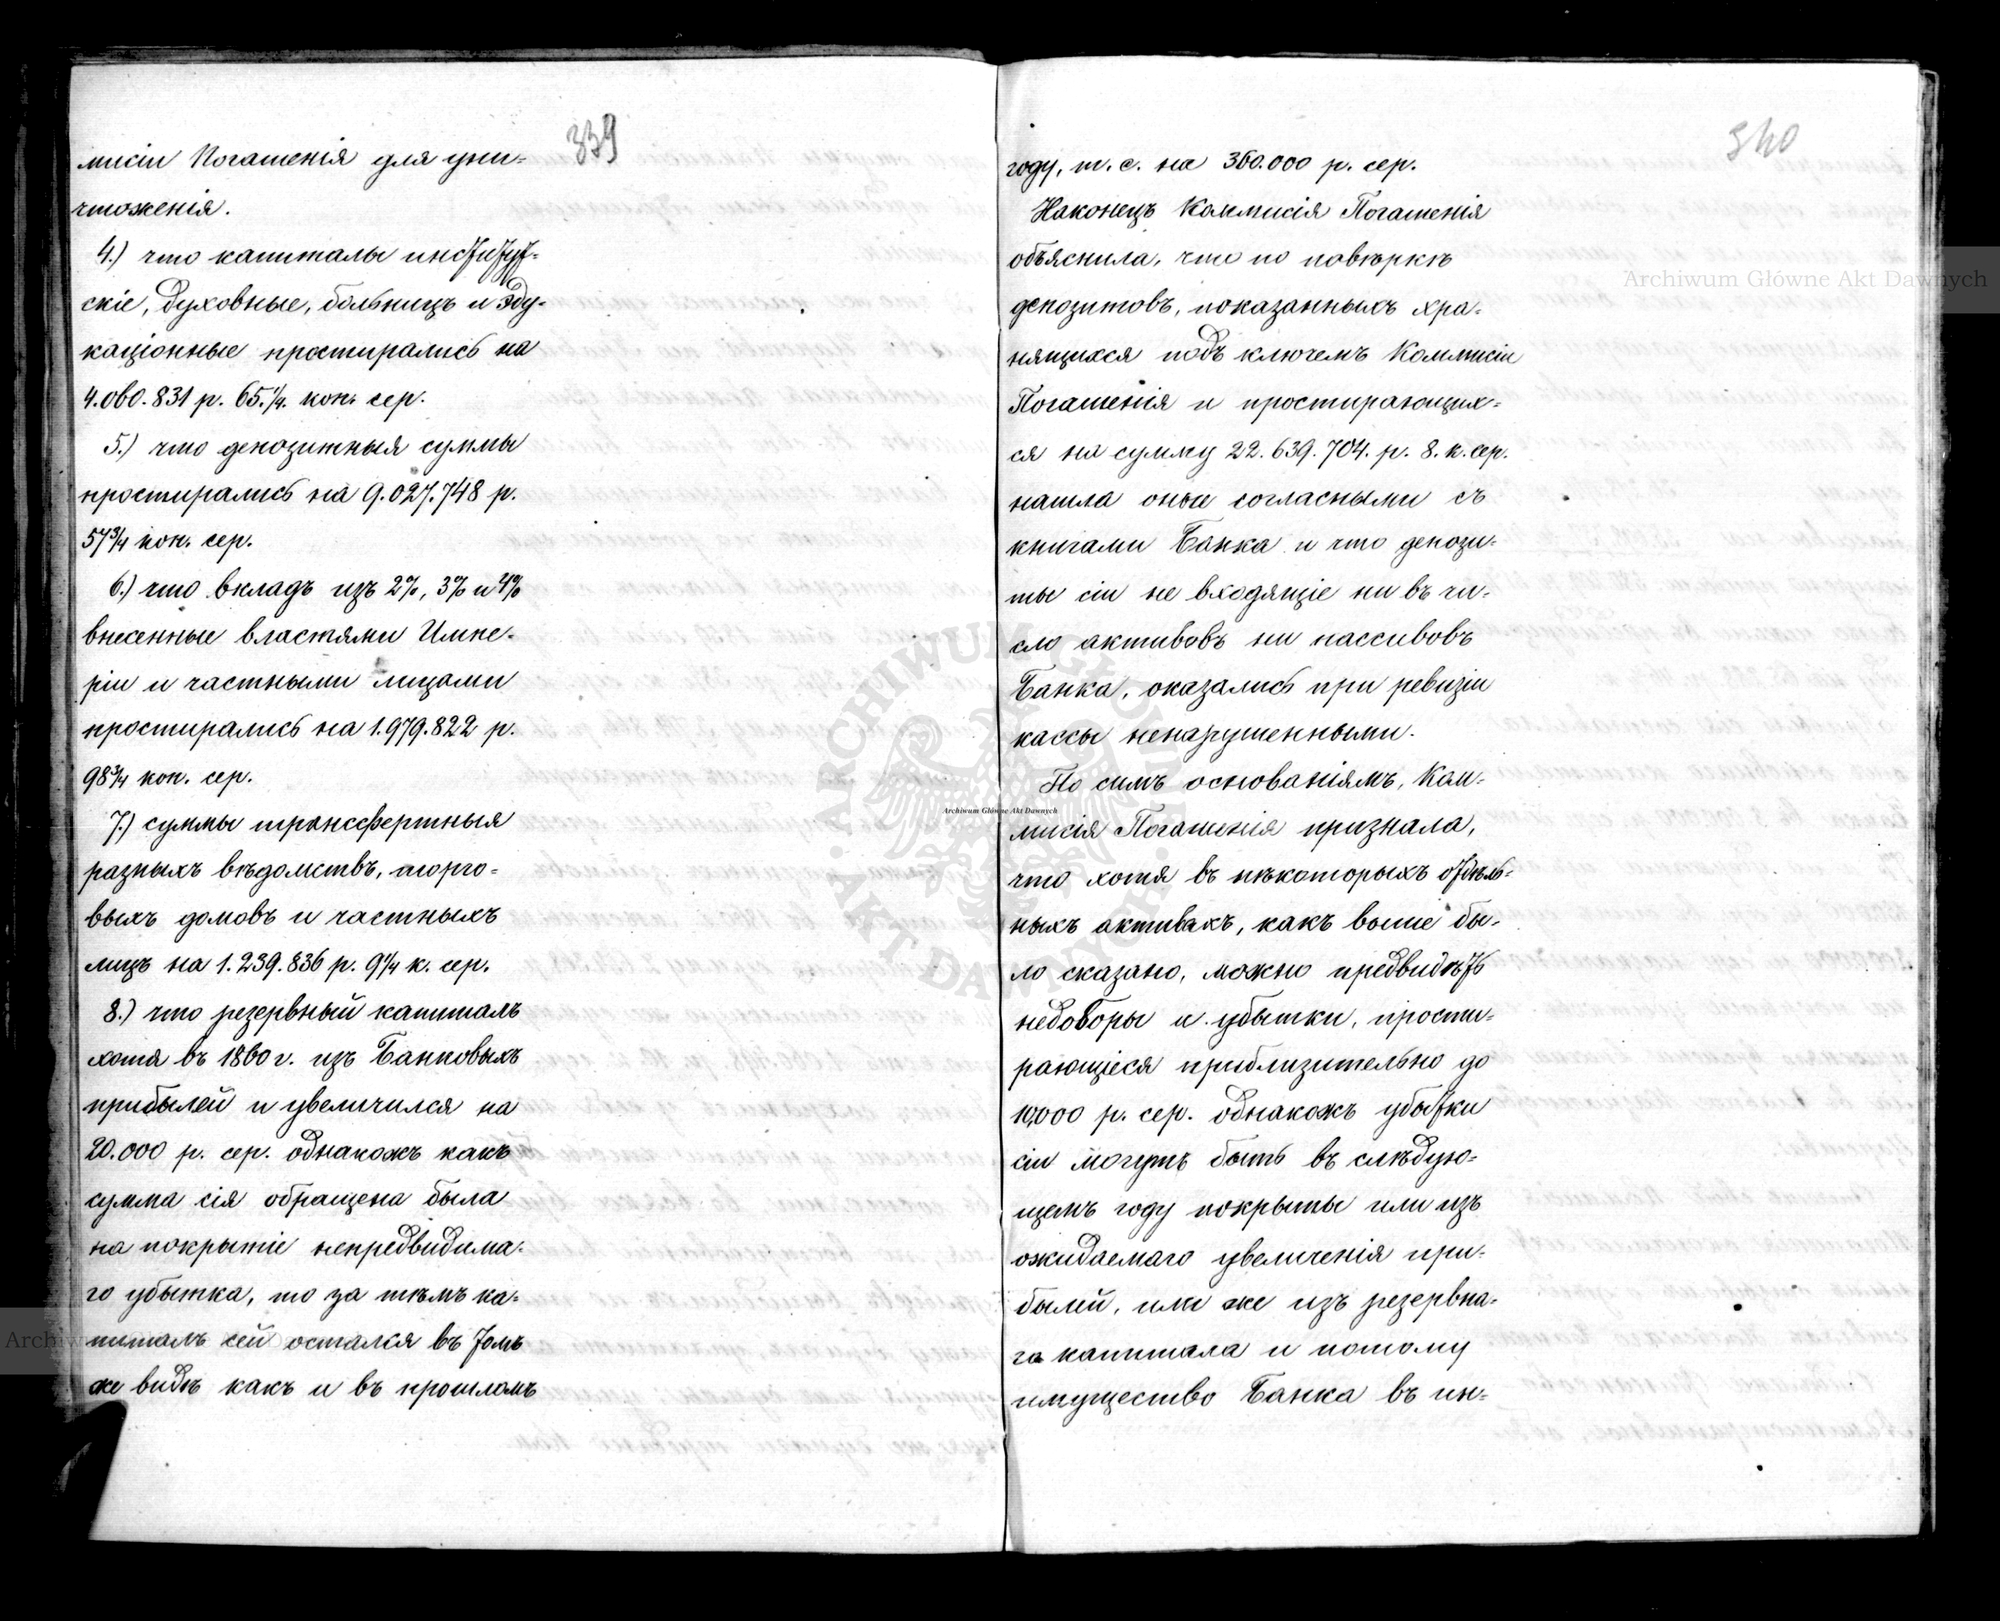 339
мисіи Погашенія для уни-
чтоженія.
4.) что капиталы институт-
скіе, духовные, больницъ и эду-
каціонные простирались на
4.060.831 р. 65 1/4. коп. сер.
5.) что депозитныя суммы
простирались на 9.027.748 р.
57 3/4 коп. сер.
6.) что вкладъ изъ 2%, 3% и 4%
внесенные властями Импе-
ріи и частными лицами
простирались на 1.979.822 р.
98 3/4 коп. сер.
7.) суммы трансфертныя
разныхъ вѣдомствъ, торго-
выхъ домовъ и частныхъ
лицъ на 1.239.836 р. 9 1/4 к. сер.
8.) что резервный капиталъ
хотя въ 1860 г. изъ Банковыхъ
прибылей и увеличился на
20.000 р. сер. однакожъ какъ
сумма сія обращена была
на покрытіе непредвидима-
го убытка, то за тѣмъ ка-
питалъ сей остался въ томъ
же видѣ какъ и въ прошломъ
340
году, т. е. на 360.000 р. сер.
Наконецъ Коммисія Погашенія
объяснила, что по повѣркѣ
депозитовъ, показанныхъ хра-
нящихся подъ ключемъ Коммисіи
Погашенія и простирающих-
ся на сумму 22.639.704. р. 8. к. сер.
нашла оные согласными съ
книгами Банка и что депози-
ты сіи не входящіе ни въ чи-
сло активовъ ни пассивовъ
Банка, оказались при ревизіи
кассы ненарушенными.
По симъ основаніямъ, Ком-
мисія Погашенія признала,
что хотя въ нѣкоторыхъ отдѣль-
ныхъ активахъ, какъ выше бы-
ло сказано, можно предвидѣть
недоборы и убытки, прости-
рающіеся приблизительно до
10,000 р. сер. однакожъ убытки
сіи могутъ быть въ слѣдую-
щемъ году покрыты или изъ
ожидаемаго увеличенія при-
былей, или же изъ резервна-
го капитала и потому
имущество Банка въ ин-
Archiwum Główne Akt Dawnych
Archiwum Główne Akt Dawnych
ARCHIWUM GŁÓWNE AKT DAWNYCH